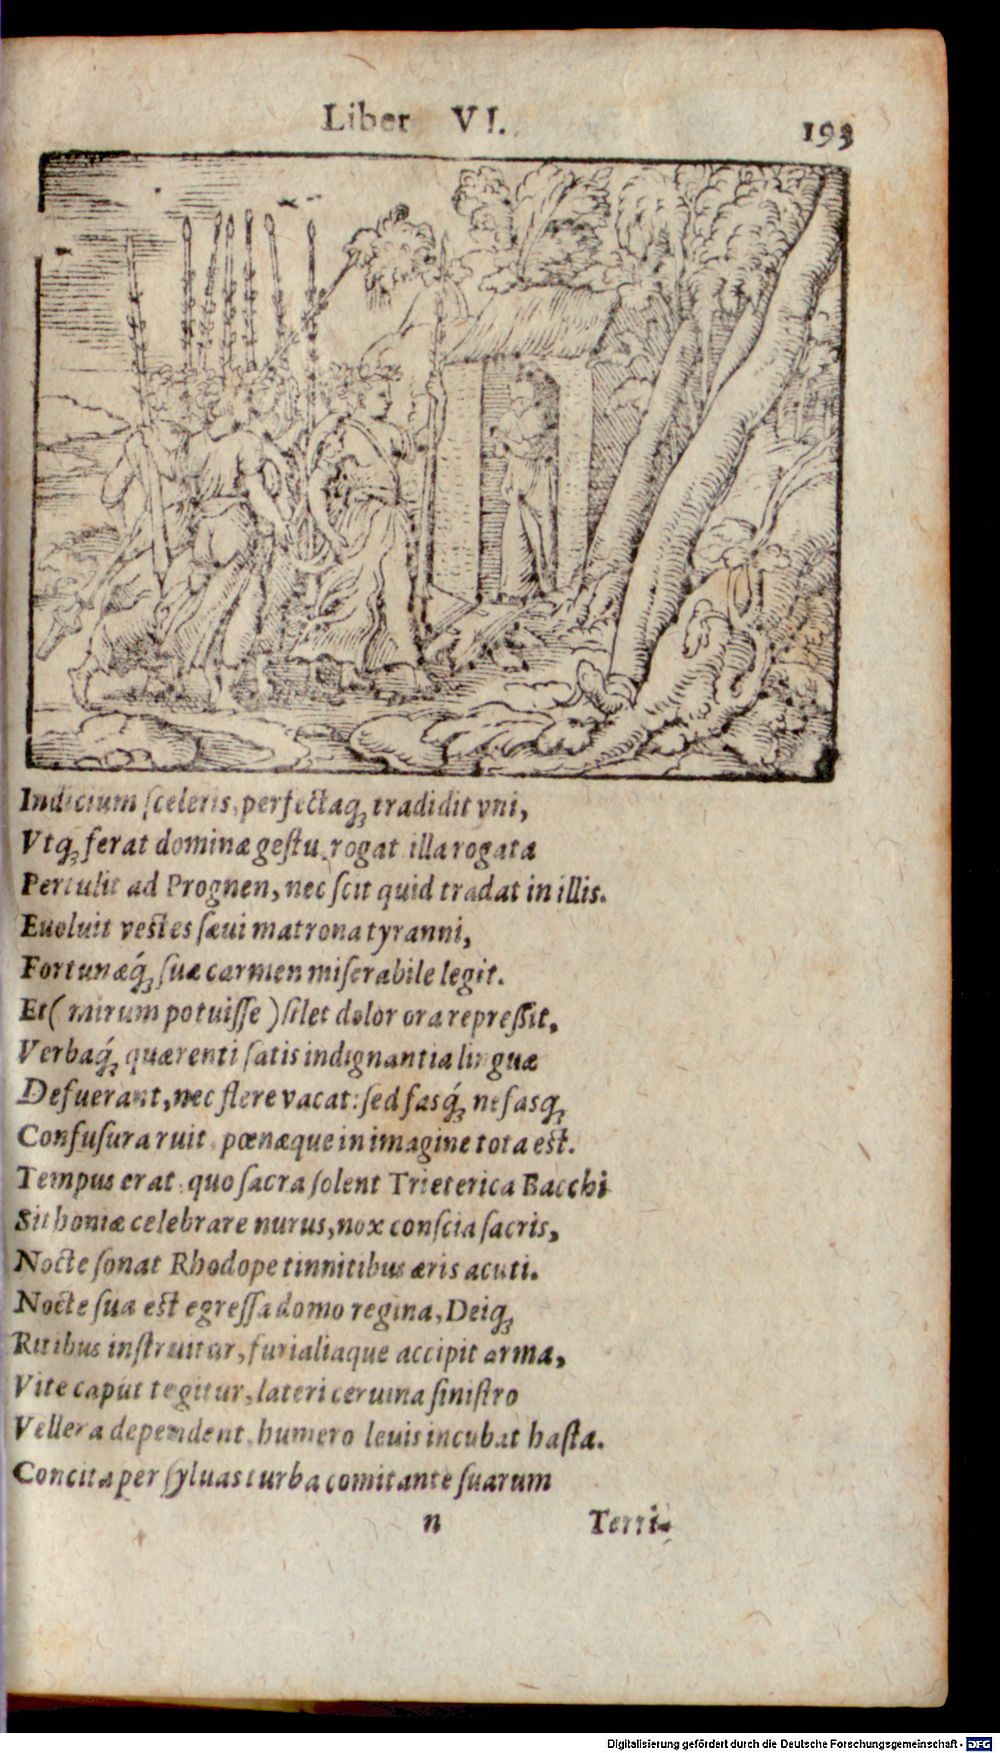 Liber VI.
193
Indicium ſceleris, perfectaq́ꝫ tradidit vni,
Vtq́ꝫ ferat dominæ geſtu, rogat illa rogata
Pertulit ad Prognen, nec ſcit quid tradat in illis.
Euoluit veſtes ſæui matrona tyranni,
Fortunæq́ꝫ ſuæ carmen miſerabile legit.
Et (mirum potuiſſe) ſilet dolor ora repreſſit,
Verbaq́ꝫ quærenti ſatis indignantia linguæ
Defuerant, nec flere vacat: ſed faſq́ꝫ nefaſqꝫ
Confuſura ruit, pœnæque in imagine tota eſt.
Tempus erat, quo ſacra ſolent Trieterica Bacchi
Sithoniæ celebrare nurus, nox conſcia ſacris,
Nocte ſonat Rhodope tinnitibus æris acuti.
Nocte ſua eſt egreſſa domo regina, Deiqꝫ
Ritibus inſtruitur, furialiaque accipit arma,
Vite caput tegitur, lateri ceruina ſiniſtro
Vellera dependent, humero leuis incubat haſta.
Concita per ſyluas turba comitante ſuarum
n Terri-
Digitalisierung gefördert durch die Deutsche Forschungsgemeinschaft - DFG